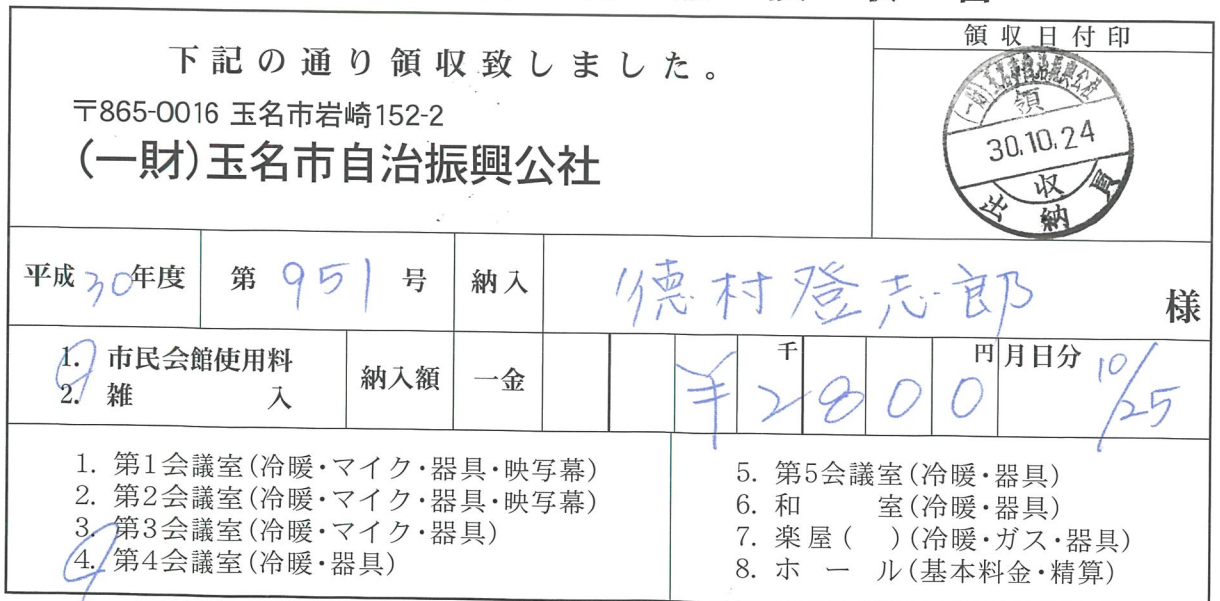 下記の通り領収致しました。
〒865-0016 玉名市岩崎152-2
(一財)玉名市自治振興公社
領収日付印
(一財)玉名市自治振興公社
領
30.10.24
収
出納員
平成30年度 第951号 納入 德村登志郎 様
1. 市民会館使用料
2. 雑入
納入額 一金 ¥2800 千 円 月日分 10/25
1. 第1会議室(冷暖・マイク・器具・映写幕)
2. 第2会議室(冷暖・マイク・器具・映写幕)
3. 第3会議室(冷暖・マイク・器具)
4. 第4会議室(冷暖・器具)
5. 第5会議室(冷暖・器具)
6. 和室(冷暖・器具)
7. 楽屋( )(冷暖・ガス・器具)
8. ホール(基本料金・精算)